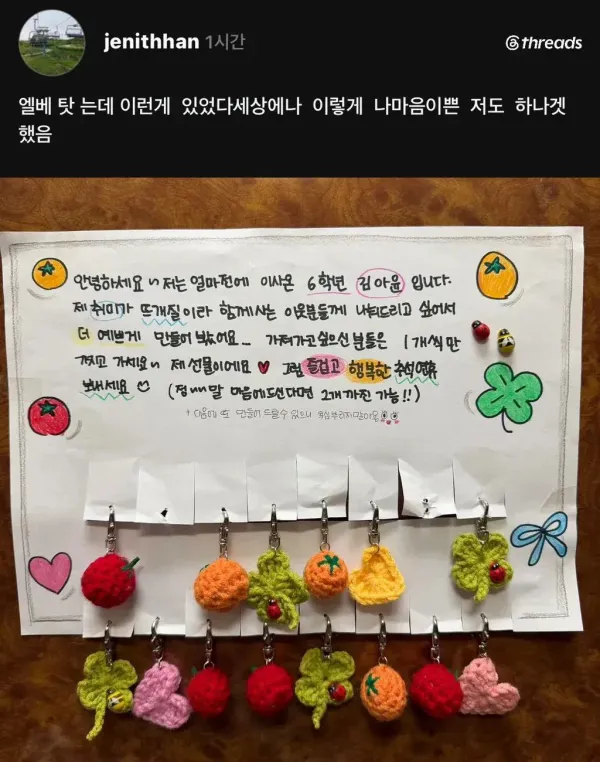 jenithhan 1시간
threads
엘베 탓 는데 이런게 있었다세상에나 이렇게 나마음이쁜 저도 하나겟
했음
안녕하세요~ 저는 얼마전에 이사온 6학년 김아윤 입니다.
제 취미가 뜨개질이라 함께사는 이웃분들께 나눠드리고 싶어서
더 예쁘게 만들어 봤어요... 가져가고싶으신 분들은 1개씩만
찢고 가세요~ 제 선물이에요 ♥ 그럼 즐겁고 행복한 추석연휴
보내세요 (정 마음에드신다면 2개까진 가능!!)
+ 다음에 또 만들어 드릴수 있으니 욕심부리지말아욧